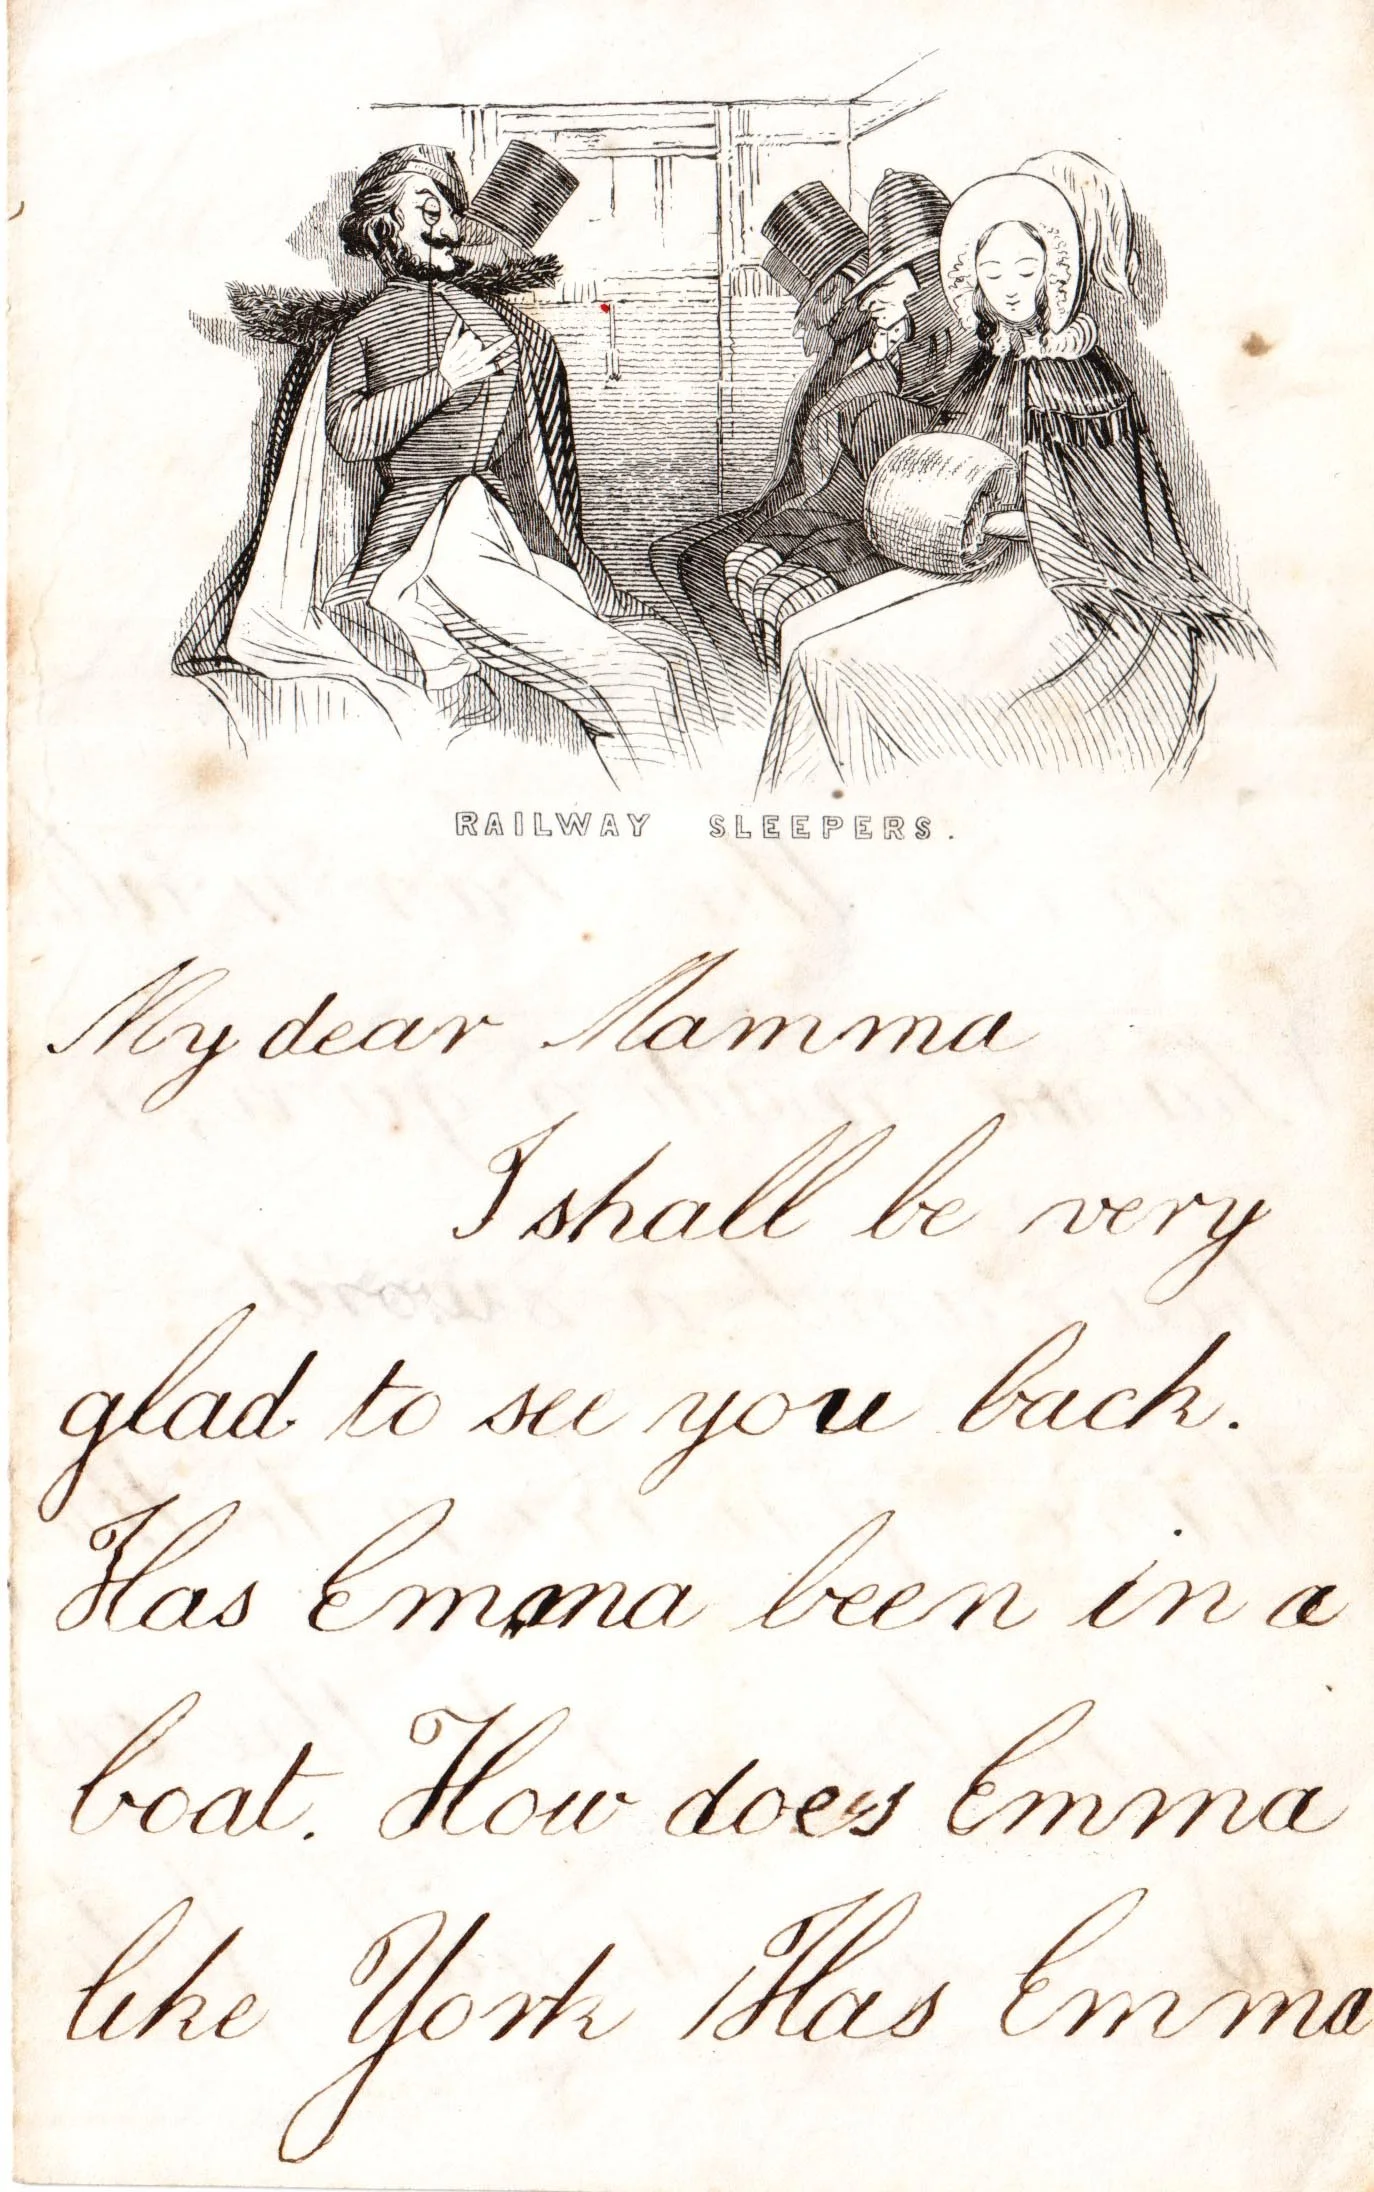 RAILWAY SLEEPERS.
My dear Mamma
I shall be very
glad to see you back.
Has Emma been in a
boat. How does Emma
like York Has Emma